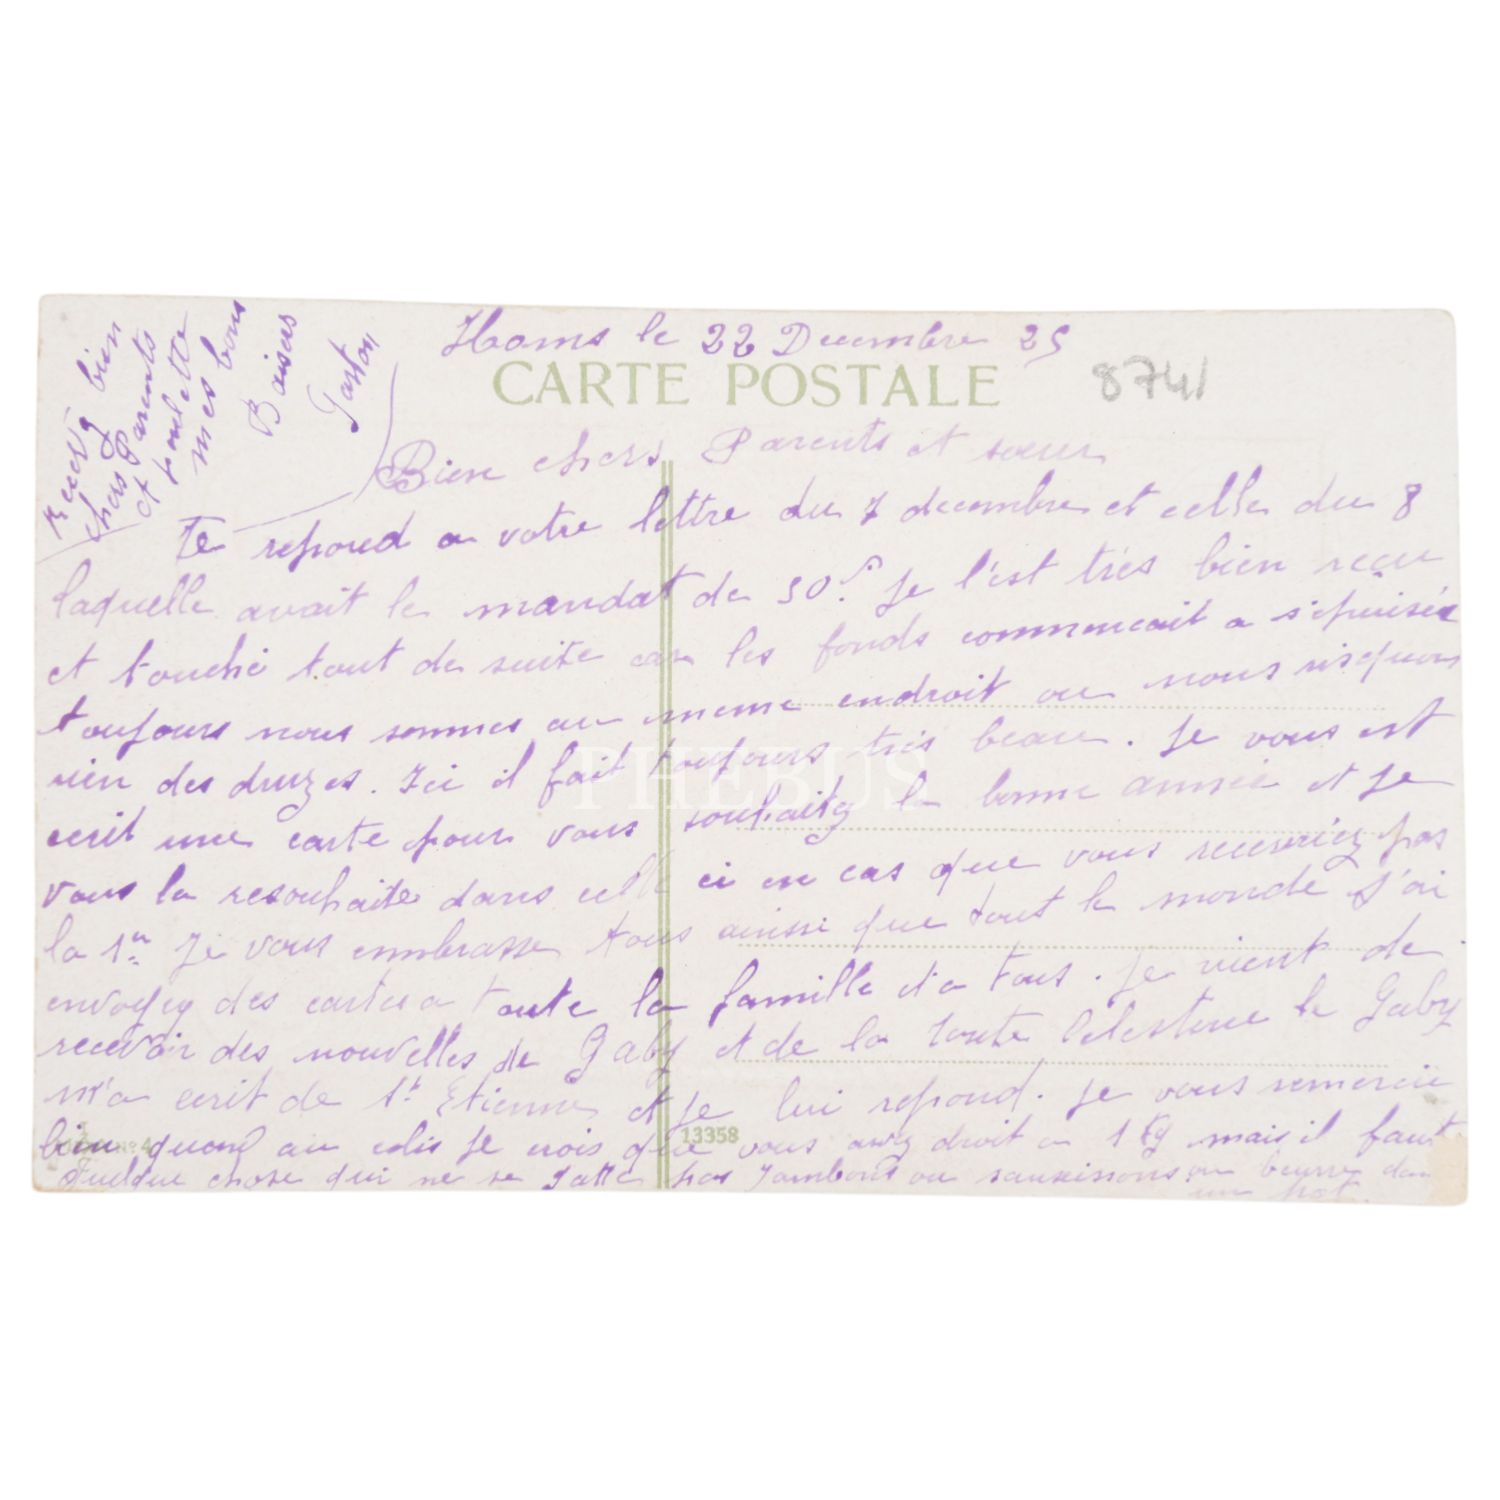 Homs le 22 Decembre 25
CARTE POSTALE
8741
Bien chers Parents et soeur
Je repond a votre lettre du 7 decembre et celle du 8
laquelle avait le mandat de 50f. Je l'est très bien reçu
et touché tout de suite car les fonds commencait a s'épuisée
toujours nous sommes au meme endroit ou nous risquons
rien des druzes. Ici il fait toujours très beau. Je vous est
ecrit une carte pour vous souhaitez la bonne année et Je
vous la resouhaite dans celle ci en cas que vous receveriez pas
la 1er Je vous embrasse tous ainsi que tout le monde J'ai
envoyez des cartes a toute la famille et a tous. Je vient de
recevoir des nouvelles de Gaby et de la toute Celestine le Gaby
m'a ecrit de St Etienne et Je lui repond. Je vous remercie
bien quand au colis Je crois que vous avez droit a 1 Kg mais il faut
Quelque chose qui ne se gatte pas Jambons ou saucissons ou beurre dans
un pot.
13358
Recevez bien
chers Parents
et soeulette
mes bons
Baisers
Gaston
PHEBUS